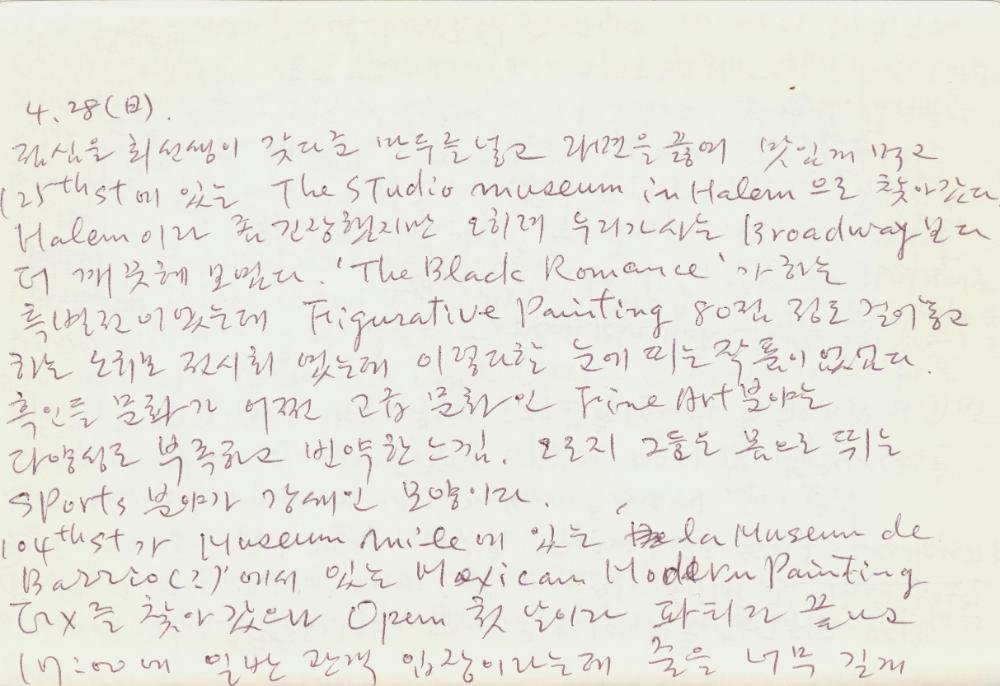 4.28(日).
점심은 최선생이 갖다준 만두를 넣고 라면을 끓여 맛있게 먹고
125th st에 있는 The STudio museum in Halem 으로 찾아갔다.
Halem이라 좀 긴장했지만 오히려 우리가 사는 Broadway보다
더 깨끗해 보였다. 'The Black Romance'가 하는
특별전이였는데 Figurative Painting 80점 정도 걸어놓고
하는 전시회 였는데 이렇다할 눈에 띄는 작품이 없었다.
흑인들 문화가 어쩐 고급 문화인 Fine Art 분야는
다양성도 부족하고 빈약한 느낌. 오로지 그들은 몸으로 뛰는
Sports 분야가 강세인 모양이다.
104th st 가 Museum mile에 있는 'la Museum de
Barrio(?)'에서 있는 Mexican Modern Painting
전X를 찾아 갔으나 Open 첫 날이라 파티라 끝나고
17:00에 일반 관객 입장이라는데 줄을 너무 길게